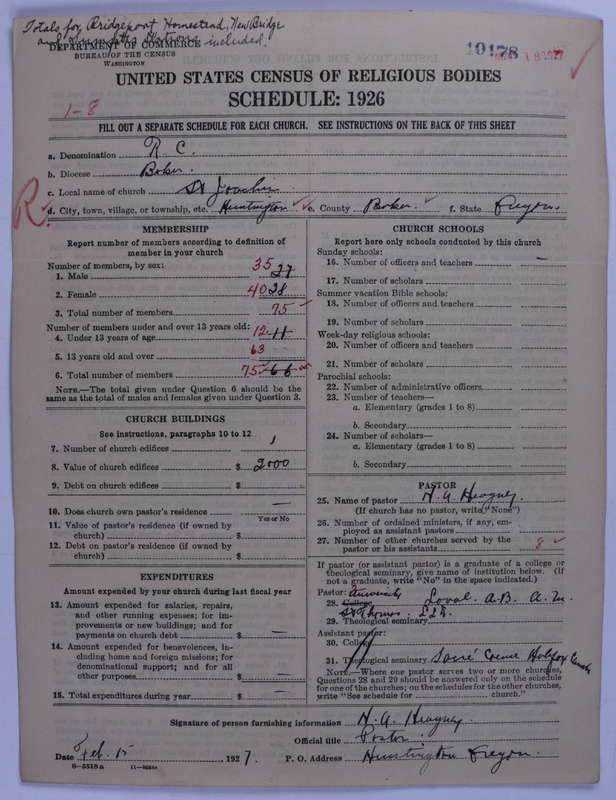 Totals for Bridgeport Homestead, New Bridge
and Stations included.
DEPARTMENT OF COMMERCE
BUREAU OF THE CENSUS
WASHINGTON
19178
18 1927
UNITED STATES CENSUS OF RELIGIOUS BODIES
SCHEDULE: 1926
1-8
FILL OUT A SEPARATE SCHEDULE FOR EACH CHURCH. SEE INSTRUCTIONS ON THE BACK OF THIS SHEET
a. Denomination R C.
b. Diocese Baker
c. Local name of church St Joachim
R.
d. City, town, village, or township, etc. Huntington e. County Baker f. State Oregon
MEMBERSHIP
Report number of members according to definition of
member in your church
Number of members, by sex:
1. Male 35 27
2. Female 40 28
3. Total number of members 75
Number of members under and over 13 years old:
4. Under 13 years of age 12 11
5. 13 years old and over 63
6. Total number of members 75 66
NOTE.—The total given under Question 6 should be the
same as the total of males and females given under Question 3.
CHURCH BUILDINGS
See instructions, paragraphs 10 to 12
7. Number of church edifices 1
8. Value of church edifices $ 2000
9. Debt on church edifices $
10. Does church own pastor's residence —
Yes or No
11. Value of pastor's residence (if owned by
church) $
12. Debt on pastor's residence (if owned by
church) $
EXPENDITURES
Amount expended by your church during last fiscal year
13. Amount expended for salaries, repairs,
and other running expenses; for im-
provements or new buildings; and for
payments on church debt $ —
14. Amount expended for benevolences, in-
cluding home and foreign missions; for
denominational support; and for all
other purposes $ —
15. Total expenditures during year $ —
CHURCH SCHOOLS
Report here only schools conducted by this church
Sunday schools:
16. Number of officers and teachers —
17. Number of scholars
Summer vacation Bible schools:
18. Number of officers and teachers
19. Number of scholars
Week-day religious schools:
20. Number of officers and teachers
21. Number of scholars
Parochial schools:
22. Number of administrative officers
23. Number of teachers—
a. Elementary (grades 1 to 8)
b. Secondary
24. Number of scholars—
a. Elementary (grades 1 to 8)
b. Secondary
PASTOR
25. Name of pastor H. A. Heagney
(If church has no pastor, write "None")
26. Number of ordained ministers, if any, em-
ployed as assistant pastors
27. Number of other churches served by the
pastor or his assistants 8
If pastor (or assistant pastor) is a graduate of a college or
theological seminary, give name of institution below. (If
not a graduate, write "No" in the space indicated.)
Pastor: University
28. College Laval A.B. A.M.
St Thomas
29. Theological seminary
Assistant pastor:
30. College
31. Theological seminary Halifax Canada
NOTE.—Where one pastor serves two or more churches,
Questions 28 and 29 should be answered only on the schedule
for one of the churches; on the schedules for the other churches,
write "See schedule for church."
Signature of person furnishing information H. A. Heagney
Official title Pastor
Date Feb. 15 1927. P. O. Address Huntington Oregon.
8-5518a